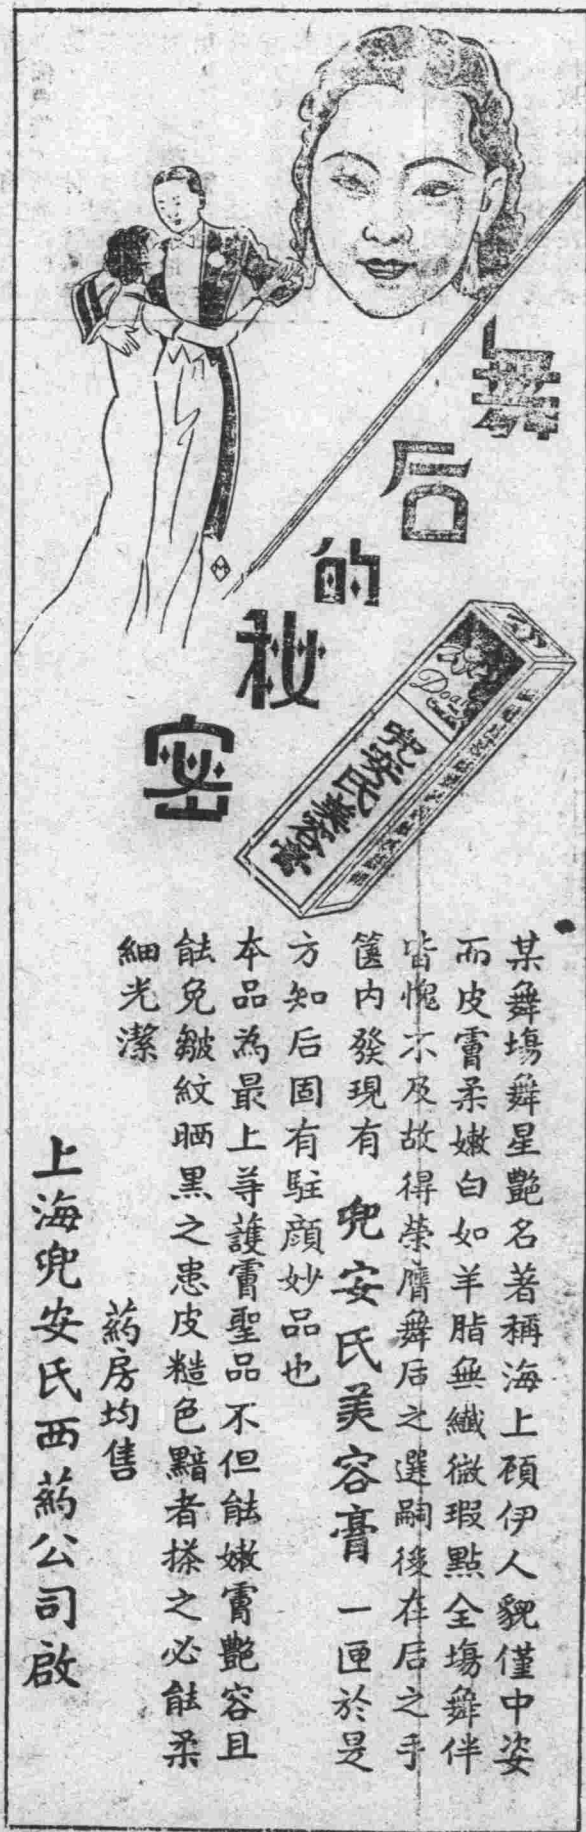 舞后的秘密
Doan
兜安氏美容膏
某舞場舞星艷名著稱海上顧伊人貌僅中姿
而皮膚柔嫩白如羊脂無纖微瑕點全場舞伴
皆愧不及故得榮膺舞后之選嗣後在后之手
篋内發現有 兜安氏美容膏 一匣於是
方知后固有駐顏妙品也
本品為最上等護膚聖品不但能嫩膚艷容且
能免皺紋晒黑之患皮糙色黯者搽之必能柔
細光潔
藥房均售
上海兜安氏西藥公司啟